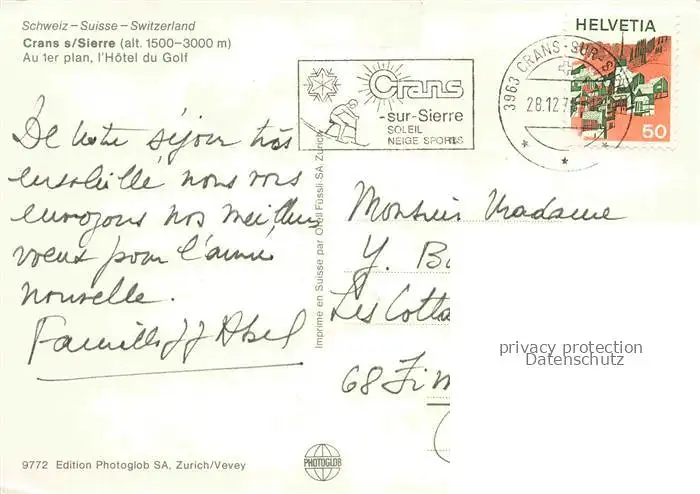 Schweiz – Suisse – Switzerland
Crans s/Sierre (alt. 1500–3000 m)
Au 1er plan, l'Hôtel du Golf
Crans
-sur-Sierre
SOLEIL
NEIGE SPORTS
3963 CRANS-SUR-S
28.12.7
HELVETIA
50
De notre séjour très
ensoleillé nous vous
envoyons nos meilleurs
voeux pour l'année
nouvelle.
Famille JJ Abel
Imprimé en Suisse par Orell Füssli SA, Zurich
Monsieur Madame
Y. B
Les Cotta
68 Fi
privacy protection
Datenschutz
9772 Edition Photoglob SA, Zurich/Vevey
PHOTOGLOB